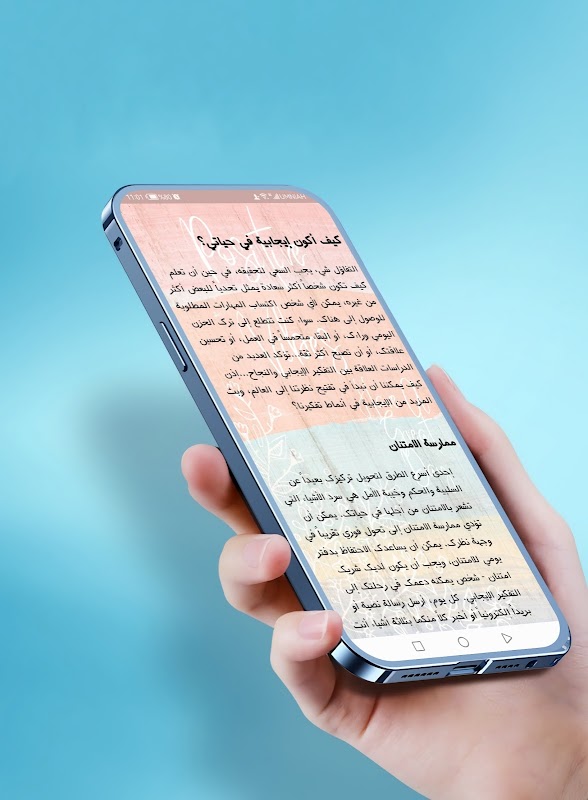 11:01 %80 UMNIAH
Positive
كيف أكون إيجابية في حياتي؟
التفاؤل شيء يجب السعي لتحقيقه، في حين أن تعلم
كيف تكون شخصاً أكثر سعادة يمثل تحدياً للبعض أكثر
من غيره، يمكن لأي شخص اكتساب المهارات المطلوبة
للوصول إلى هناك. سواء كنت تتطلع إلى ترك الحزن
اليومي وراءك، أو البقاء متحمساً في العمل، أو تحسين
علاقتك، أو أن تصبح أكثر ثقة.. تؤكد العديد من
الدراسات العلاقة بين التفكير الإيجابي والنجاح...إذن
كيف يمكننا أن نبدأ في تفتيح نظرتنا إلى العالم، وبث
المزيد من الإيجابية في أنماط تفكيرنا؟
ممارسة الامتنان
إحدى أسرع الطرق لتحويل تركيزك بعيداً عن
السلبية والحكم وخيبة الأمل هي سرد الأشياء التي
تشعر بالامتنان من أجلها في حياتك. يمكن أن
تؤدي ممارسة الامتنان إلى تحول فوري تقريباً في
وجهة نظرك. يمكن أن يساعدك الاحتفاظ بدفتر
يومي للامتنان، ويجب أن يكون لديك شريك
امتنان - شخص يمكنه دعمك في رحلتك إلى
التفكير الإيجابي. كل يوم، أرسل رسالة نصية أو
بريداً إلكترونياً أو أخبر كلاً منكما بثلاثة أشياء أنت